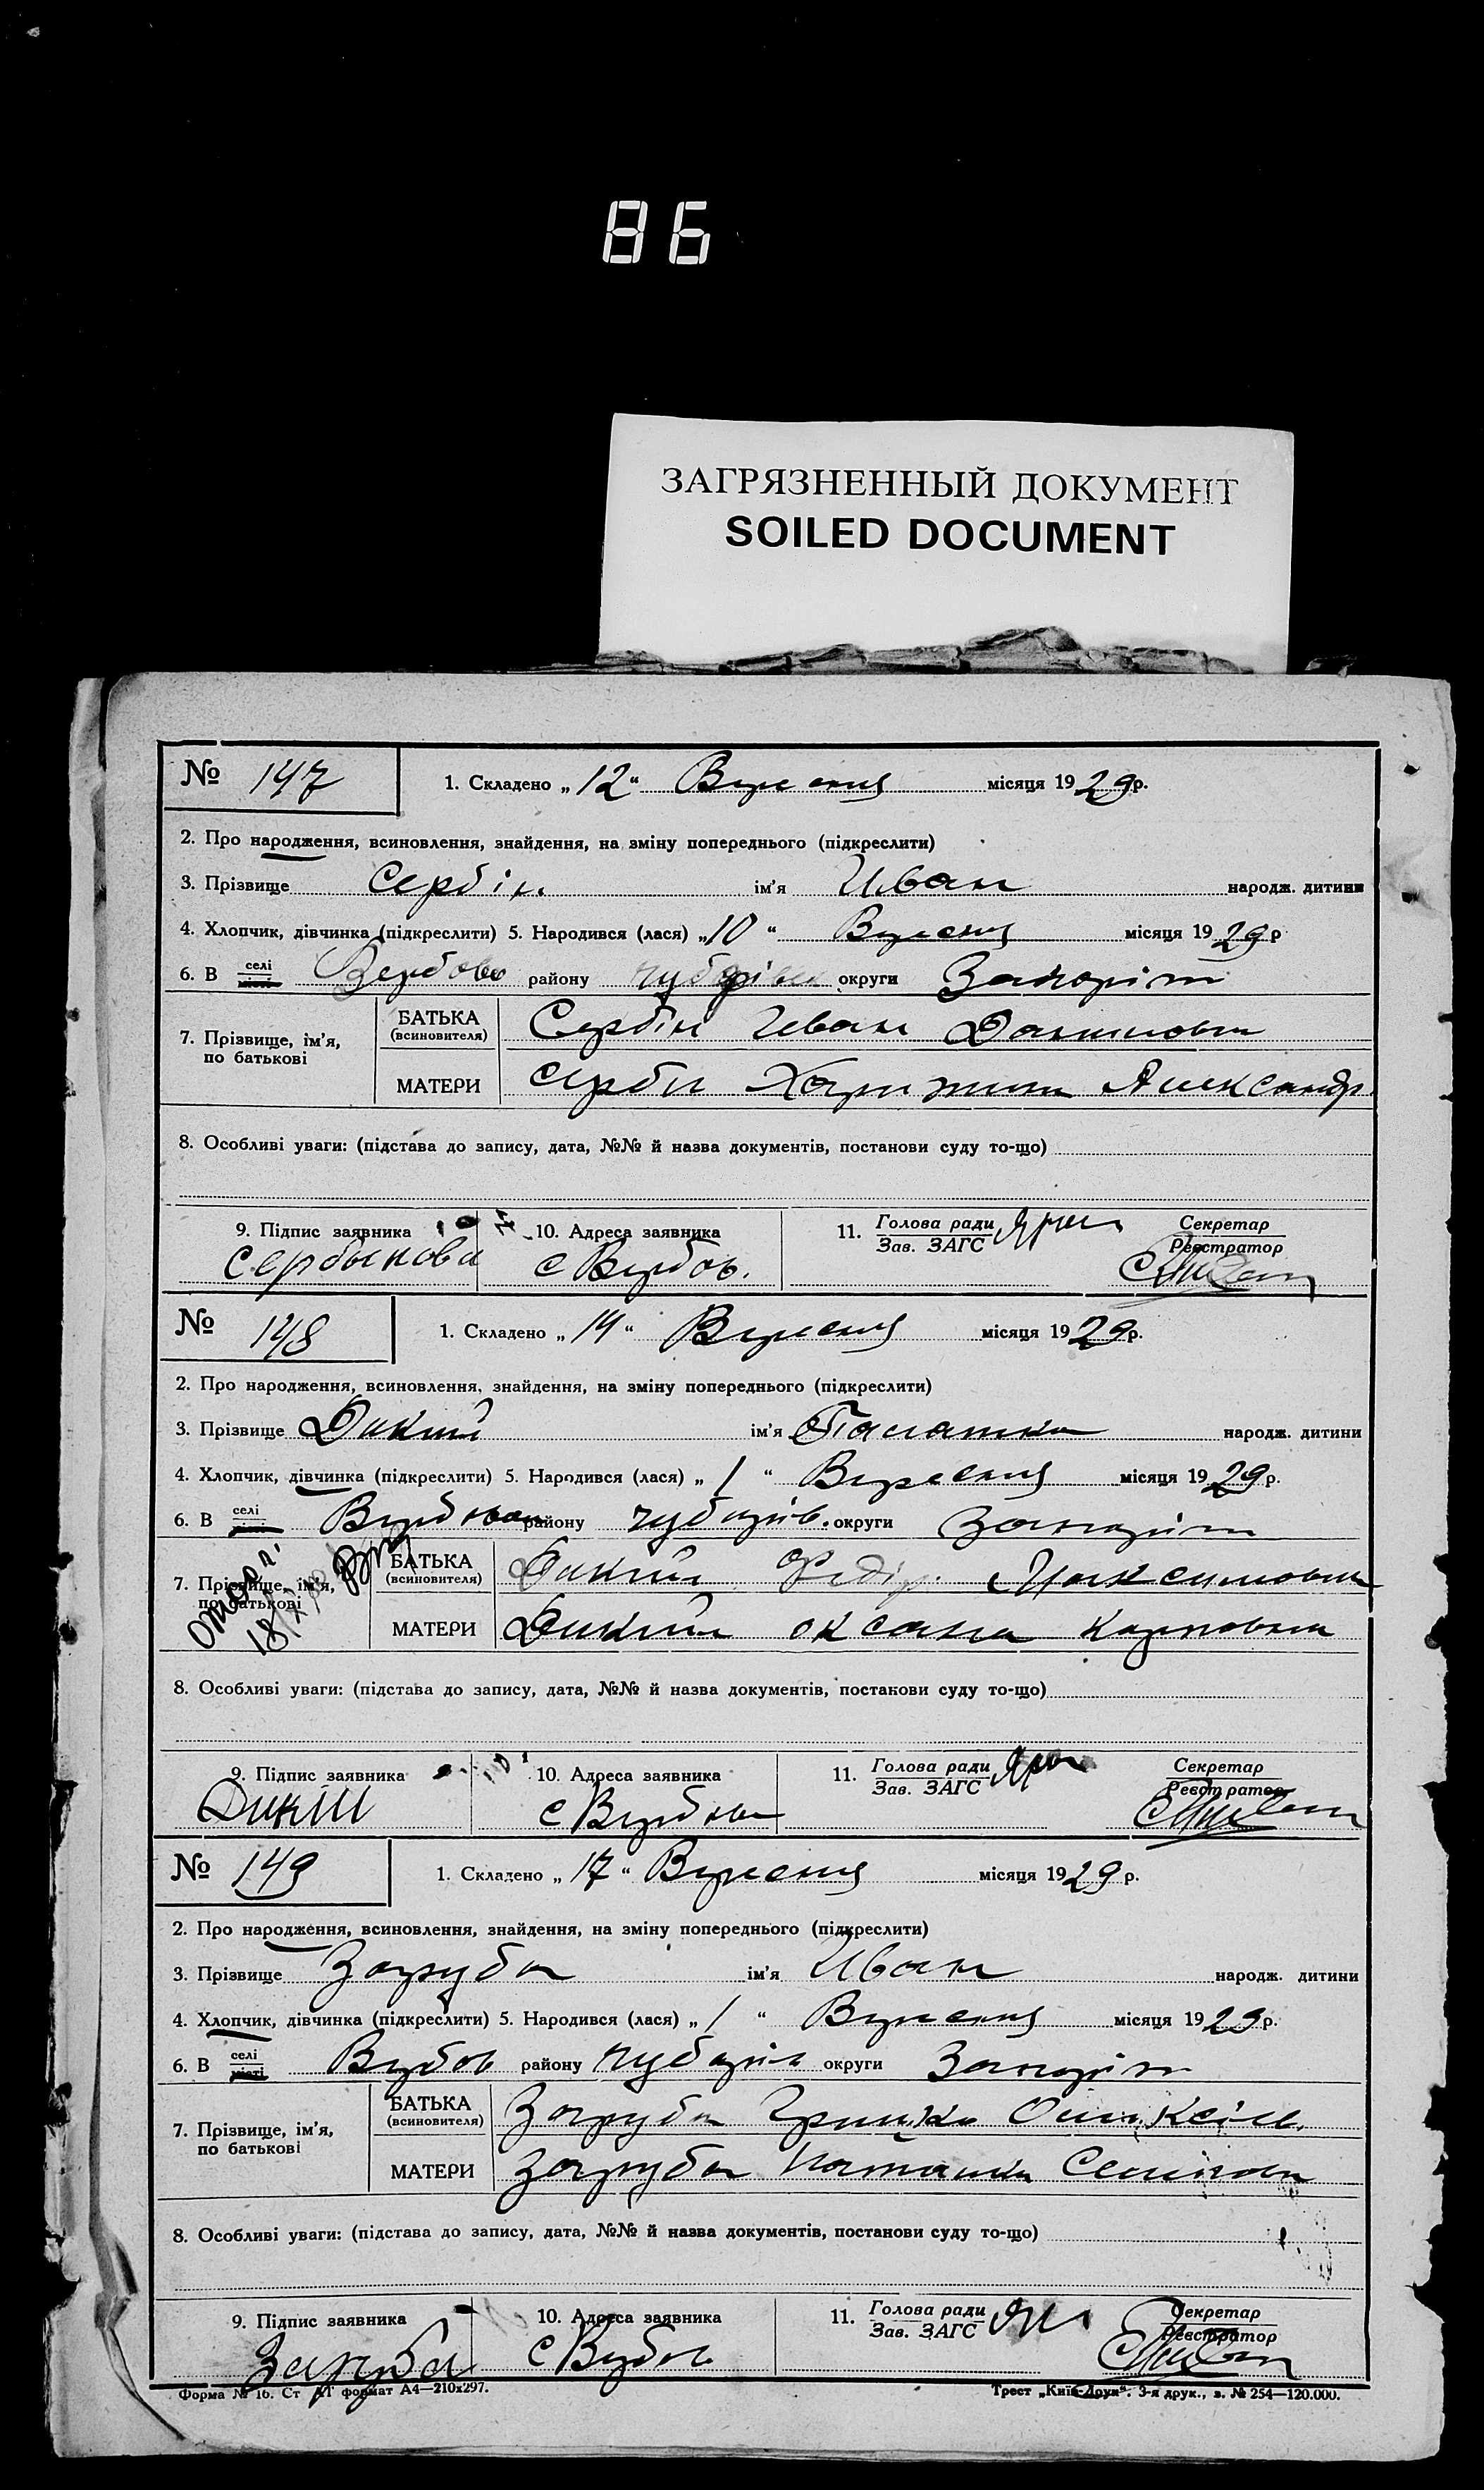 86
ЗАГРЯЗНЕННЫЙ ДОКУМЕНТ
SOILED DOCUMENT
№ 147 1. Складено „12“ Вересня місяця 1929р.
2. Про народження, всиновлення, знайдення, на зміну попереднього (підкреслити)
3. Прізвище Сербін ім’я Иван народж. дитини
4. Хлопчик, дівчинка (підкреслити) 5. Народився (лася) „10“ Вересня місяця 1929р
6. В селі місті Вербове району Чубарівсь округи Запоріж
7. Прізвище, ім’я, по батькові
БАТЬКА (всиновителя) Сербін Иван
МАТЕРИ Сербін Александр.
8. Особливі уваги: (підстава до запису, дата, №№ й назва документів, постанови суду то-що)
9. Підпис заявника 10. Адреса заявника 11. Голова ради Зав. ЗАГС Секретар Реєстратор
Сербинова с Вербов.
№ 148 1. Складено „14“ Вересня місяця 1929р.
2. Про народження, всиновлення, знайдення, на зміну попереднього (підкреслити)
3. Прізвище Дикий ім’я Палашка народж. дитини
4. Хлопчик, дівчинка (підкреслити) 5. Народився (лася) „1“ Вересня місяця 1929р.
6. В селі Вербовом району Чубарів. округи Запоріж
7. Прізвище, ім’я, по батькові
БАТЬКА (всиновителя) Дикий Федір Максимович
МАТЕРИ Дикий Оксана Карповна
8. Особливі уваги: (підстава до запису, дата, №№ й назва документів, постанови суду то-що)
9. Підпис заявника 10. Адреса заявника 11. Голова ради Зав. ЗАГС Секретар Реєстратор
Дикий с Вербова
№ 149 1. Складено „17“ Вересня місяця 1929р.
2. Про народження, всиновлення, знайдення, на зміну попереднього (підкреслити)
3. Прізвище Заруба ім’я Иван народж. дитини
4. Хлопчик, дівчинка (підкреслити) 5. Народився (лася) „1“ Вересня місяця 1929р.
6. В селі місті Вербов району Чубарів округи Запоріж
7. Прізвище, ім’я, по батькові
БАТЬКА (всиновителя) Заруба Грицько
МАТЕРИ Заруба Наташка
8. Особливі уваги: (підстава до запису, дата, №№ й назва документів, постанови суду то-що)
9. Підпис заявника 10. Адреса заявника 11. Голова ради Зав. ЗАГС Секретар Реєстратор
Заруба с Вербов
Форма № 16. Ст А1 формат А4—210х297. Трест „Київ-Друк“. 3-я друк., з. № 254—120.000.